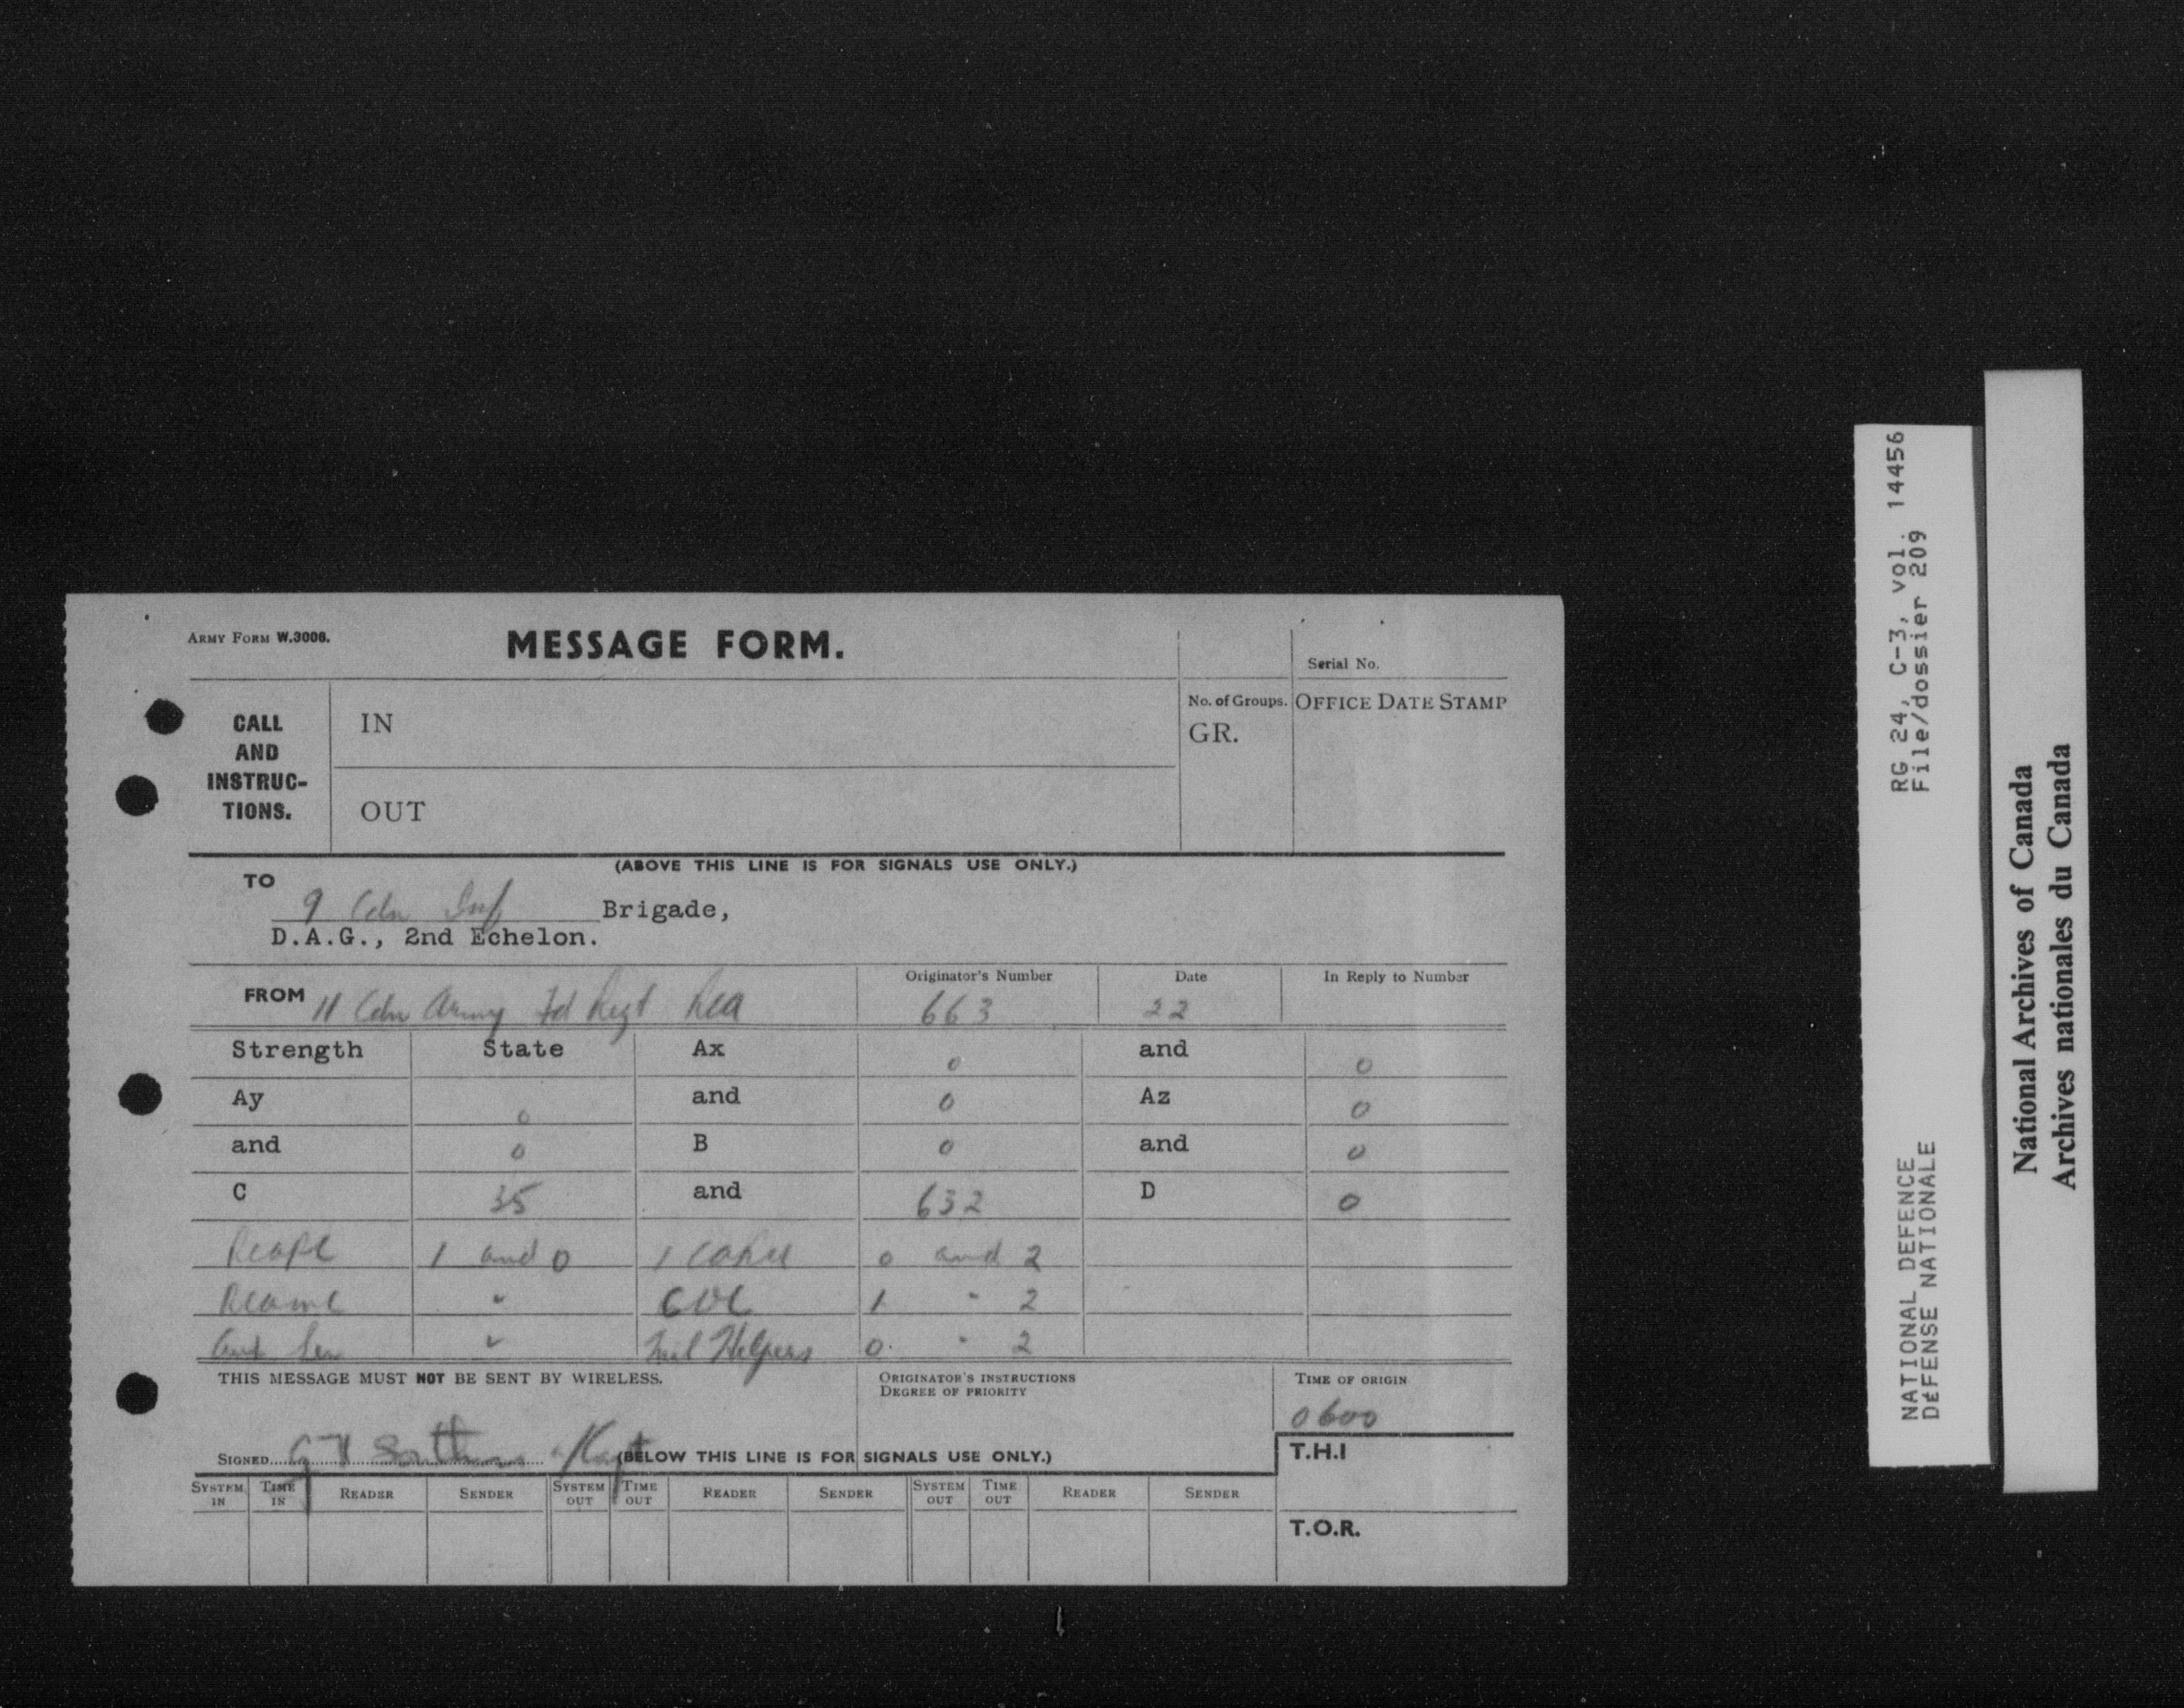 ARMY FORM W.3006.
MESSAGE FORM.
Serial No.
CALL AND INSTRUC-TIONS.
IN
OUT
No. of Groups.
GR.
OFFICE DATE STAMP
(ABOVE THIS LINE IS FOR SIGNALS USE ONLY.)
TO
9 Cdn Inf Brigade,
D.A.G., 2nd Echelon.
FROM 11 Cdn Army Fd Regt RCA
Originator's Number
663
Date
22
In Reply to Number
Strength State Ax 0 and 0
Ay 0 and 0 Az 0
and 0 B 0 and 0
C 35 and 632 D 0
RCAPC 1 and 0 0 and 2
" 1 " 2
" Helpers 0 " 2
THIS MESSAGE MUST NOT BE SENT BY WIRELESS.
ORIGINATOR'S INSTRUCTIONS
DEGREE OF PRIORITY
TIME OF ORIGIN
0600
SIGNED
(BELOW THIS LINE IS FOR SIGNALS USE ONLY.)
T.H.I
SYSTEM IN TIME IN READER SENDER SYSTEM OUT TIME OUT READER SENDER SYSTEM OUT TIME OUT READER SENDER
T.O.R.
NATIONAL DEFENCE RG 24, C-3, vol. 14456
DÉFENSE NATIONALE File/dossier 209
National Archives of Canada
Archives nationales du Canada